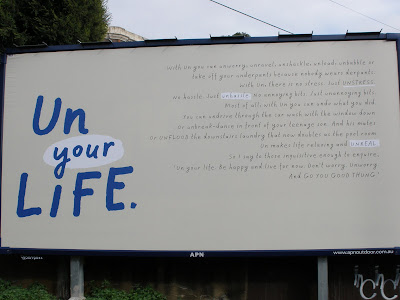 Un
your
LIFE.
With Un you can unworry, unravel, unshackle, unload, unbubble or
take off your underpants because nobody wears derpants.
With Un, there is no stress. Just UNSTRESS.
No hassle. Just unhassle. No annoying bits. Just unannoying bits.
Most of all, with Un you can undo what you did.
You can undrive through the car wash with the window down
Or unbreak-dance in front of your teenage son. And his mates
Or UNFLOOD the downstairs laundry that now doubles as the pool room
Un makes life relaxing and UNREAL
So I say to those inquisitive enough to enquire,
"Un your life. Be happy and live for now. Don't worry. Unworry
And GO YOU GOOD THUNG."
APN
www.apnoutdoor.com.au